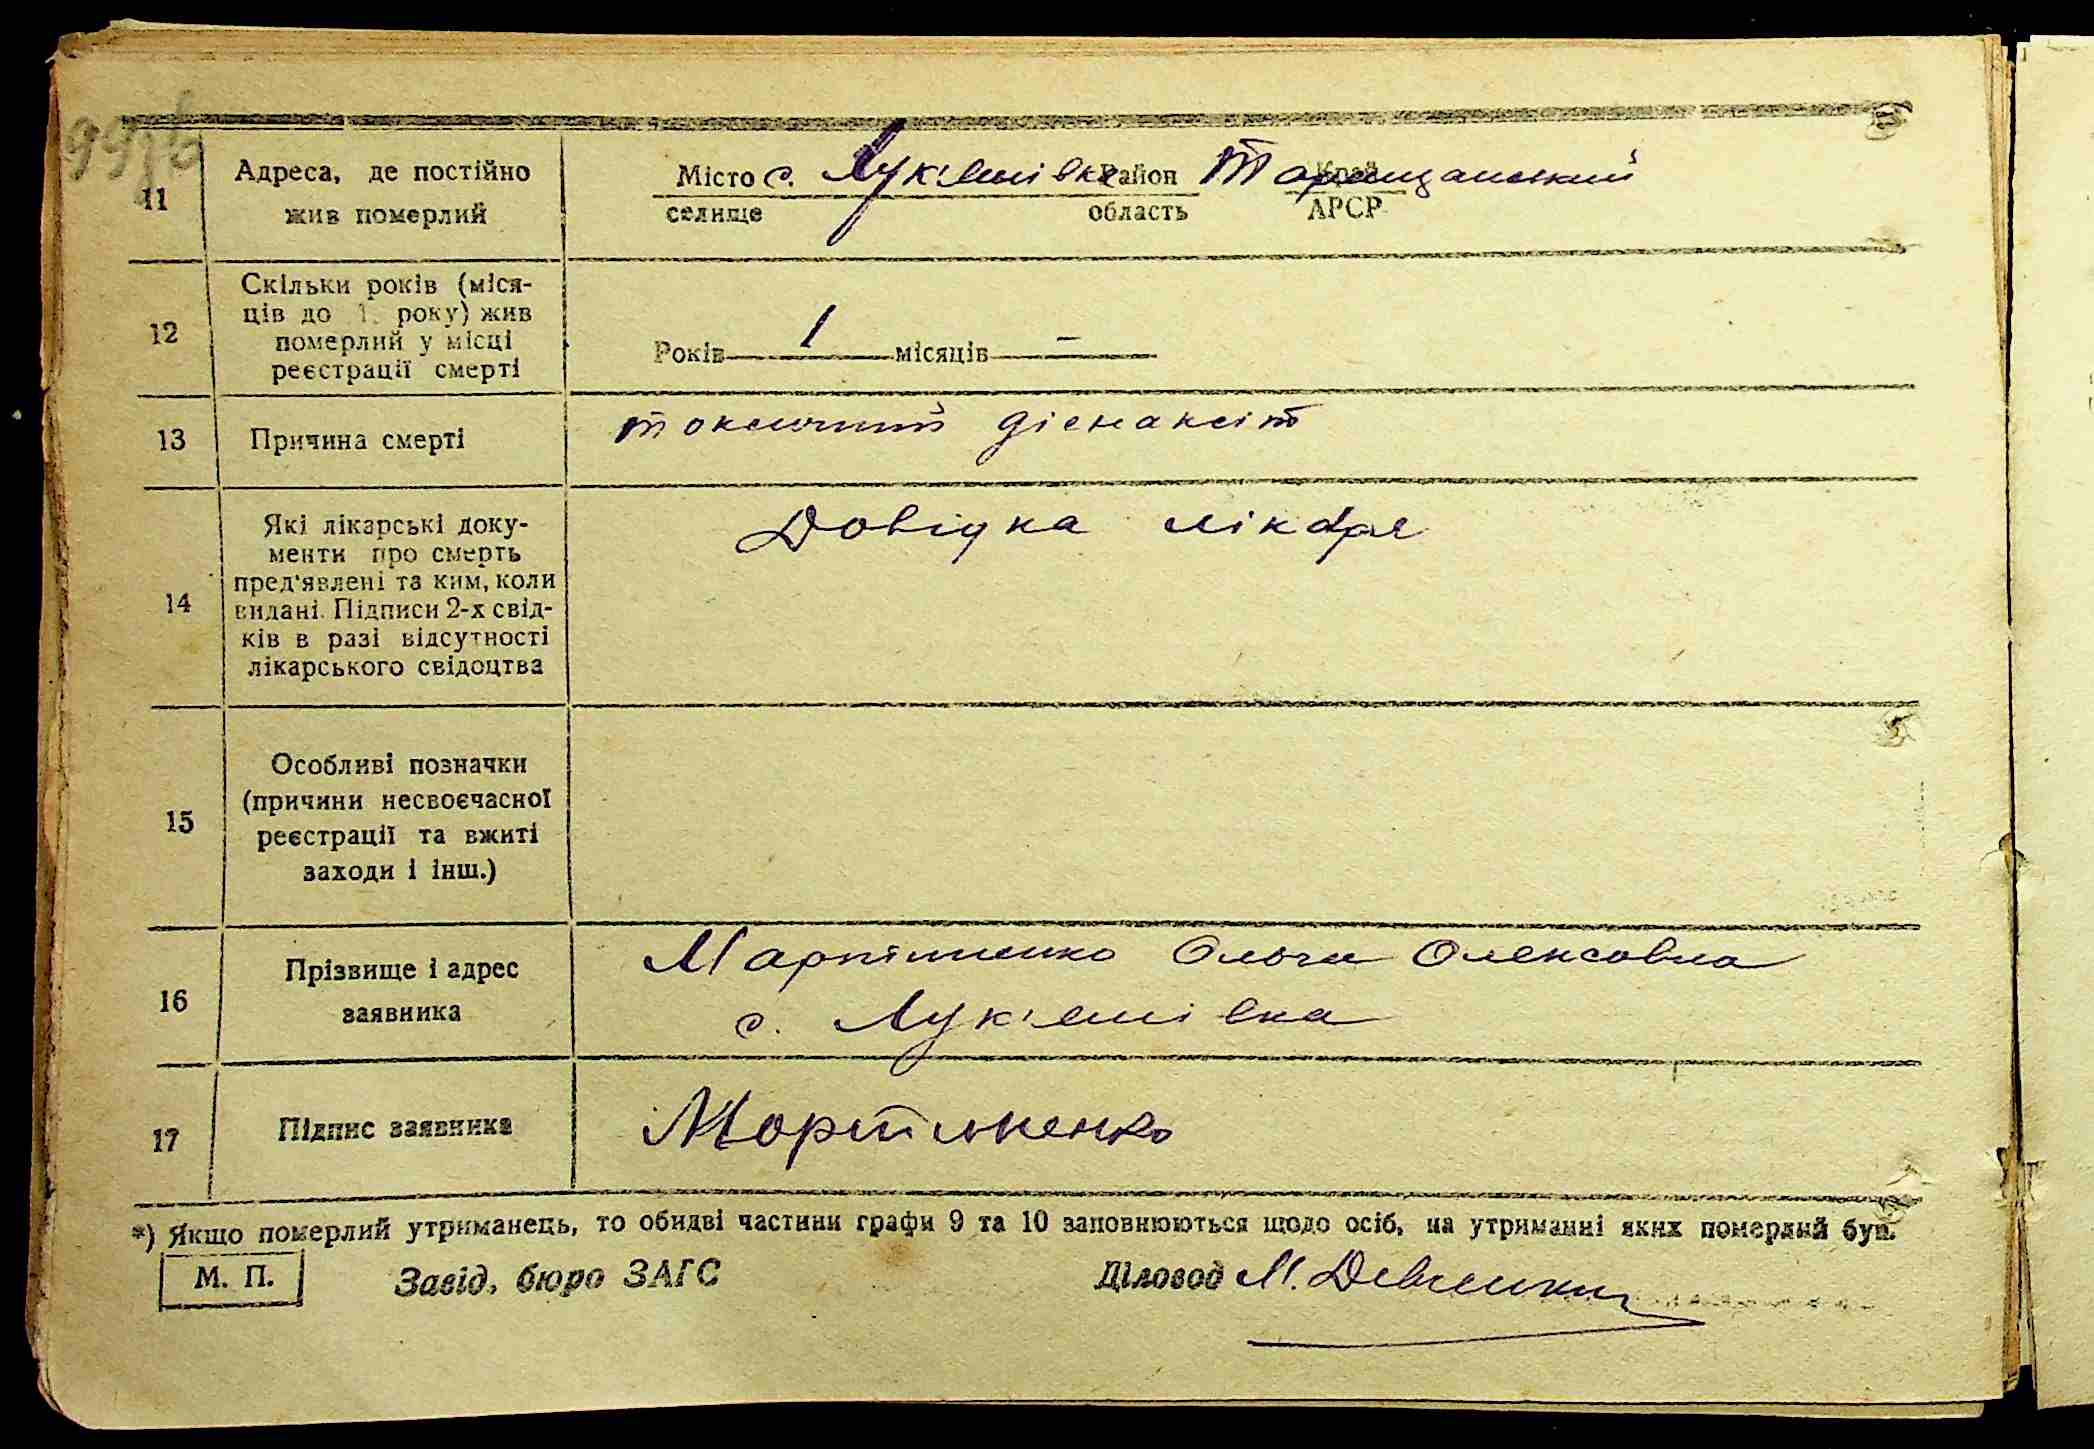 99
11
Адреса, де постійно
жив померлий
Місто с. Лук'янівка Район Таращанський Край
селище область АРСР
12
Скільки років (міся-
ців до 1 року) жив
померлий у місці
реєстрації смерті
Років 1 місяців –
13
Причина смерті
токсичний
14
Які лікарські доку-
менти про смерть
пред'явлені та ким, коли
видані. Підписи 2-х свід-
ків в разі відсутності
лікарського свідоцтва
Довідка лікаря
15
Особливі позначки
(причини несвоєчасної
реєстрації та вжиті
заходи і інш.)
16
Прізвище і адрес
заявника
Мартиненко Ольга Олексовна
с. Лук'янівка
17
Підпис заявника
*) Якщо померлий утриманець, то обидві частини графи 9 та 10 заповнюються щодо осіб, на утриманні яких померлий був.
М. П.
Завід. бюро ЗАГС
Діловод М.